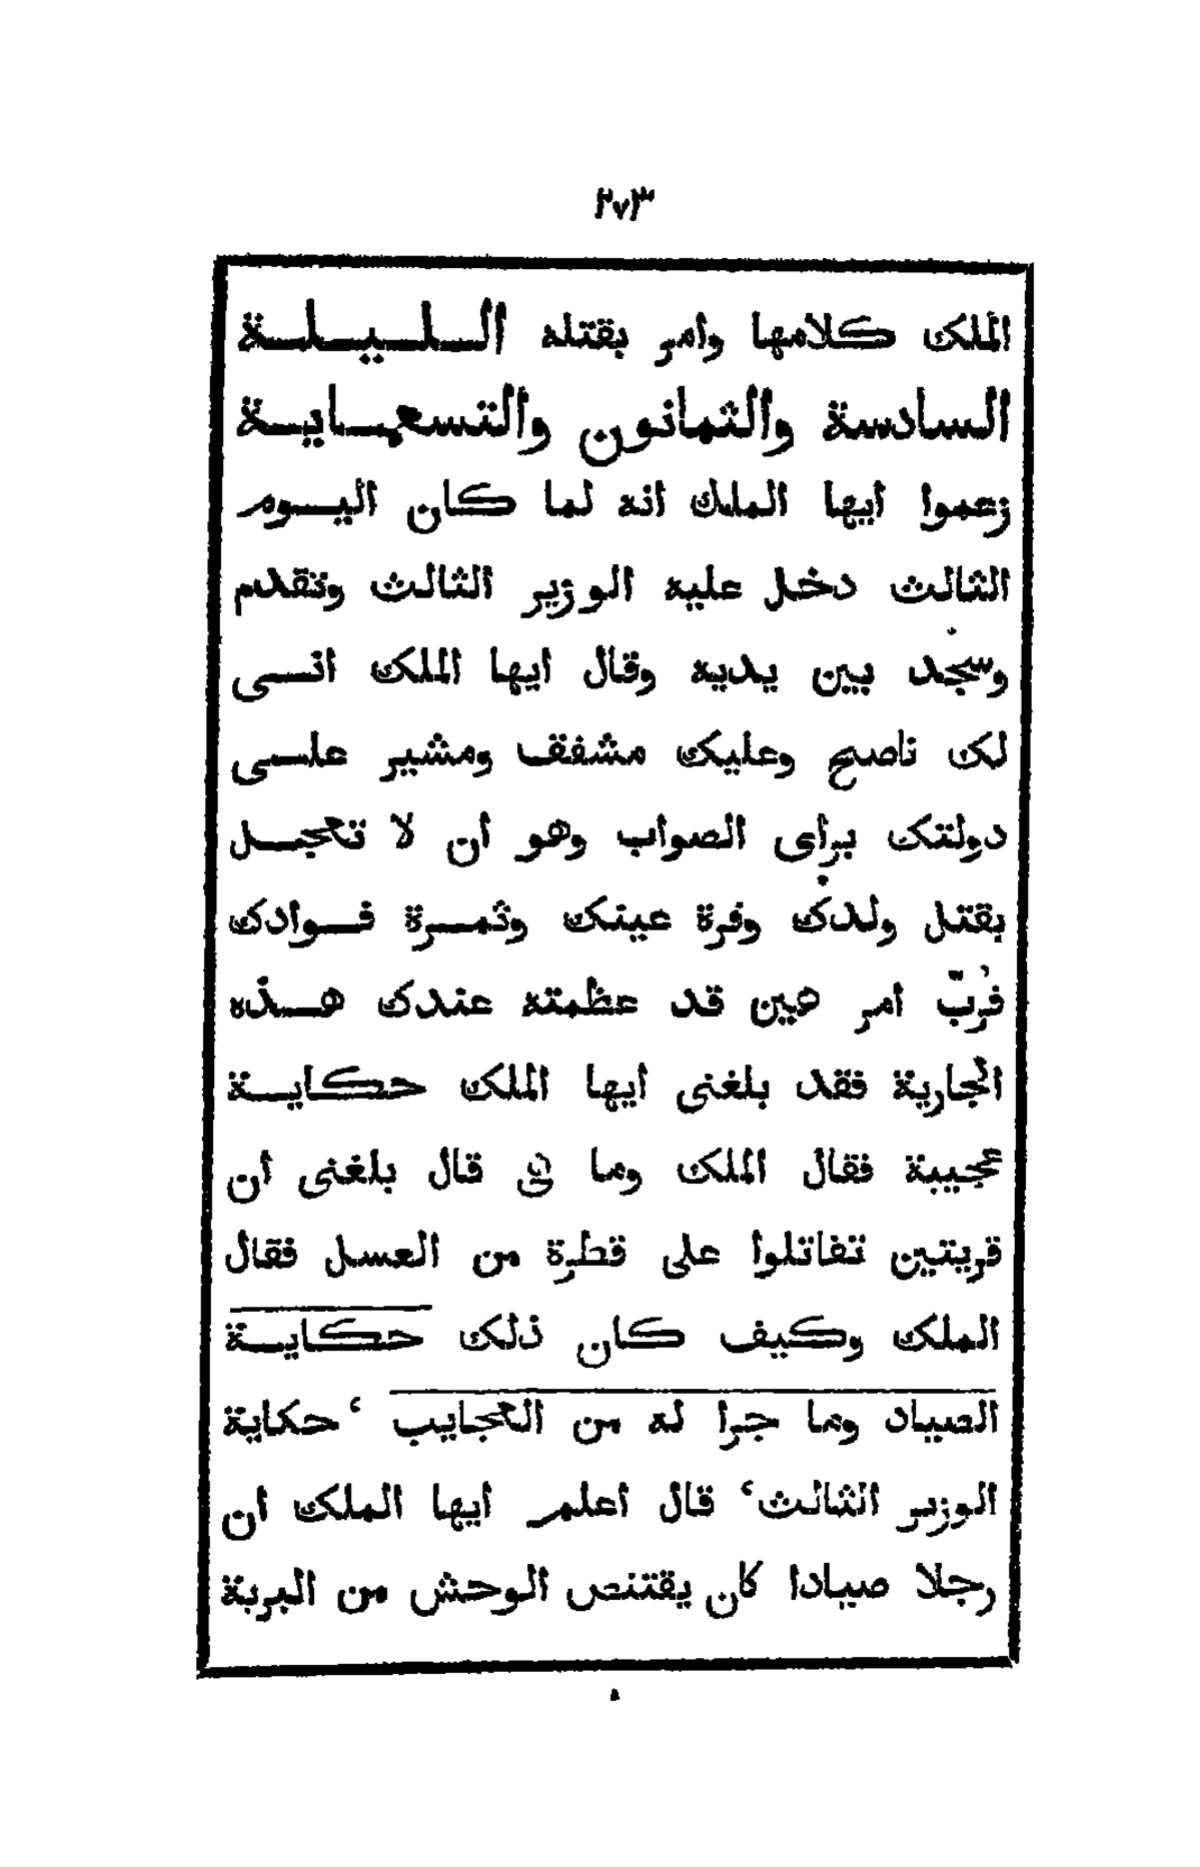 ٢٧٣
الملك كلامها وامر بقتله الـلـيـلـة
السادسة والثمانون والتسعـماية
زعموا ايها الملك انه لما كان اليـوم
الثالث دخل عليه الوزير الثالث وتقدم
وسجد بين يديه وقال ايها الملك انـى
لك ناصح وعليك مشفق ومشير علـى
دولتك براى الصواب وهو أن لا تعجـل
بقتل ولدك وقرة عينك وثمـرة فـوادك
فربّ امر هين قد عظمته عندك هـذه
الجارية فقد بلغنى ايها الملك حكايـة
عجيبة فقال الملك وما هى قال بلغنى أن
قريتين تقاتلوا على قطرة من العسل فقال
الملك وكيف كان ذلك حكايـة
الصياد وما جرا له من العجايب ‘ حكاية
الوزير الثالث ‘ قال اعلم ايها الملك ان
رجلا صيادا كان يقتنص الوحش من البرية